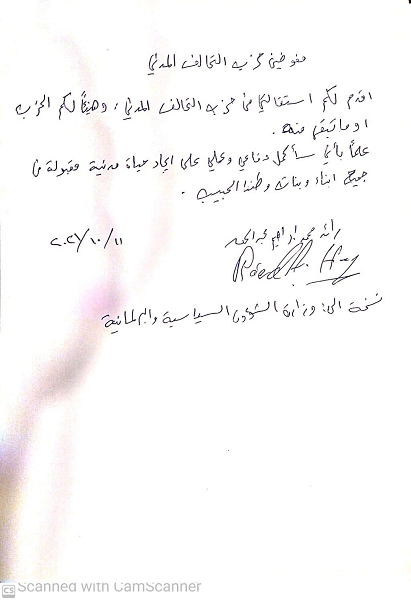 مفوضي حزب التحالف المدني
اقدم لكم استقالتي من حزب التحالف المدني، وهنيئاً لكم الحزب
او ما تبقى منه.
علماً بأني سأكمل دفاعي وعملي على ايجاد حياة مدنية مقبولة من
جميع ابناء وبنات وطننا الحبيب.
ابراهيم عبد
٢٠٢٢/١٠/١١
نسخة الى: وزارة الشؤون السياسية والبرلمانية
CS Scanned with CamScanner